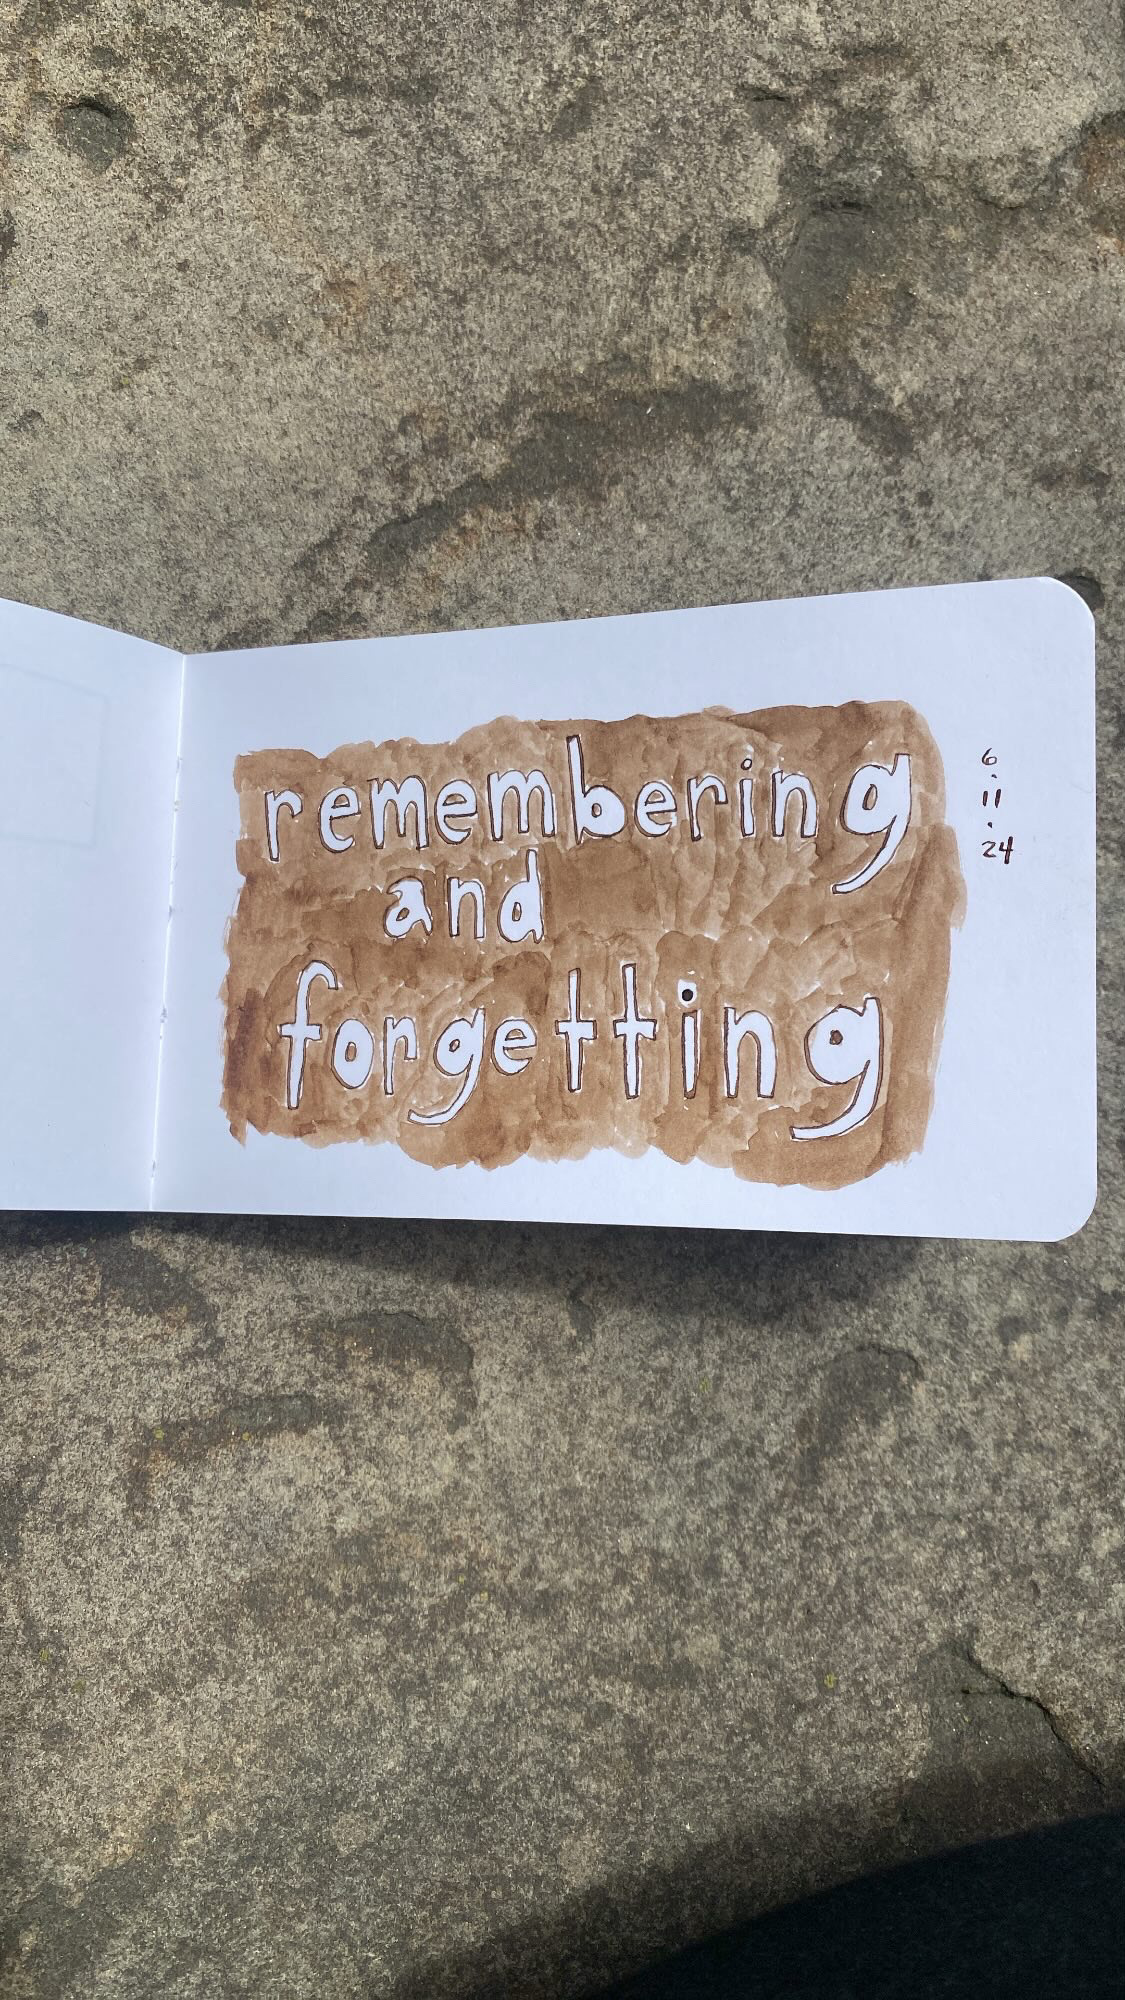 remembering
and
forgetting
6
.
11
.
24